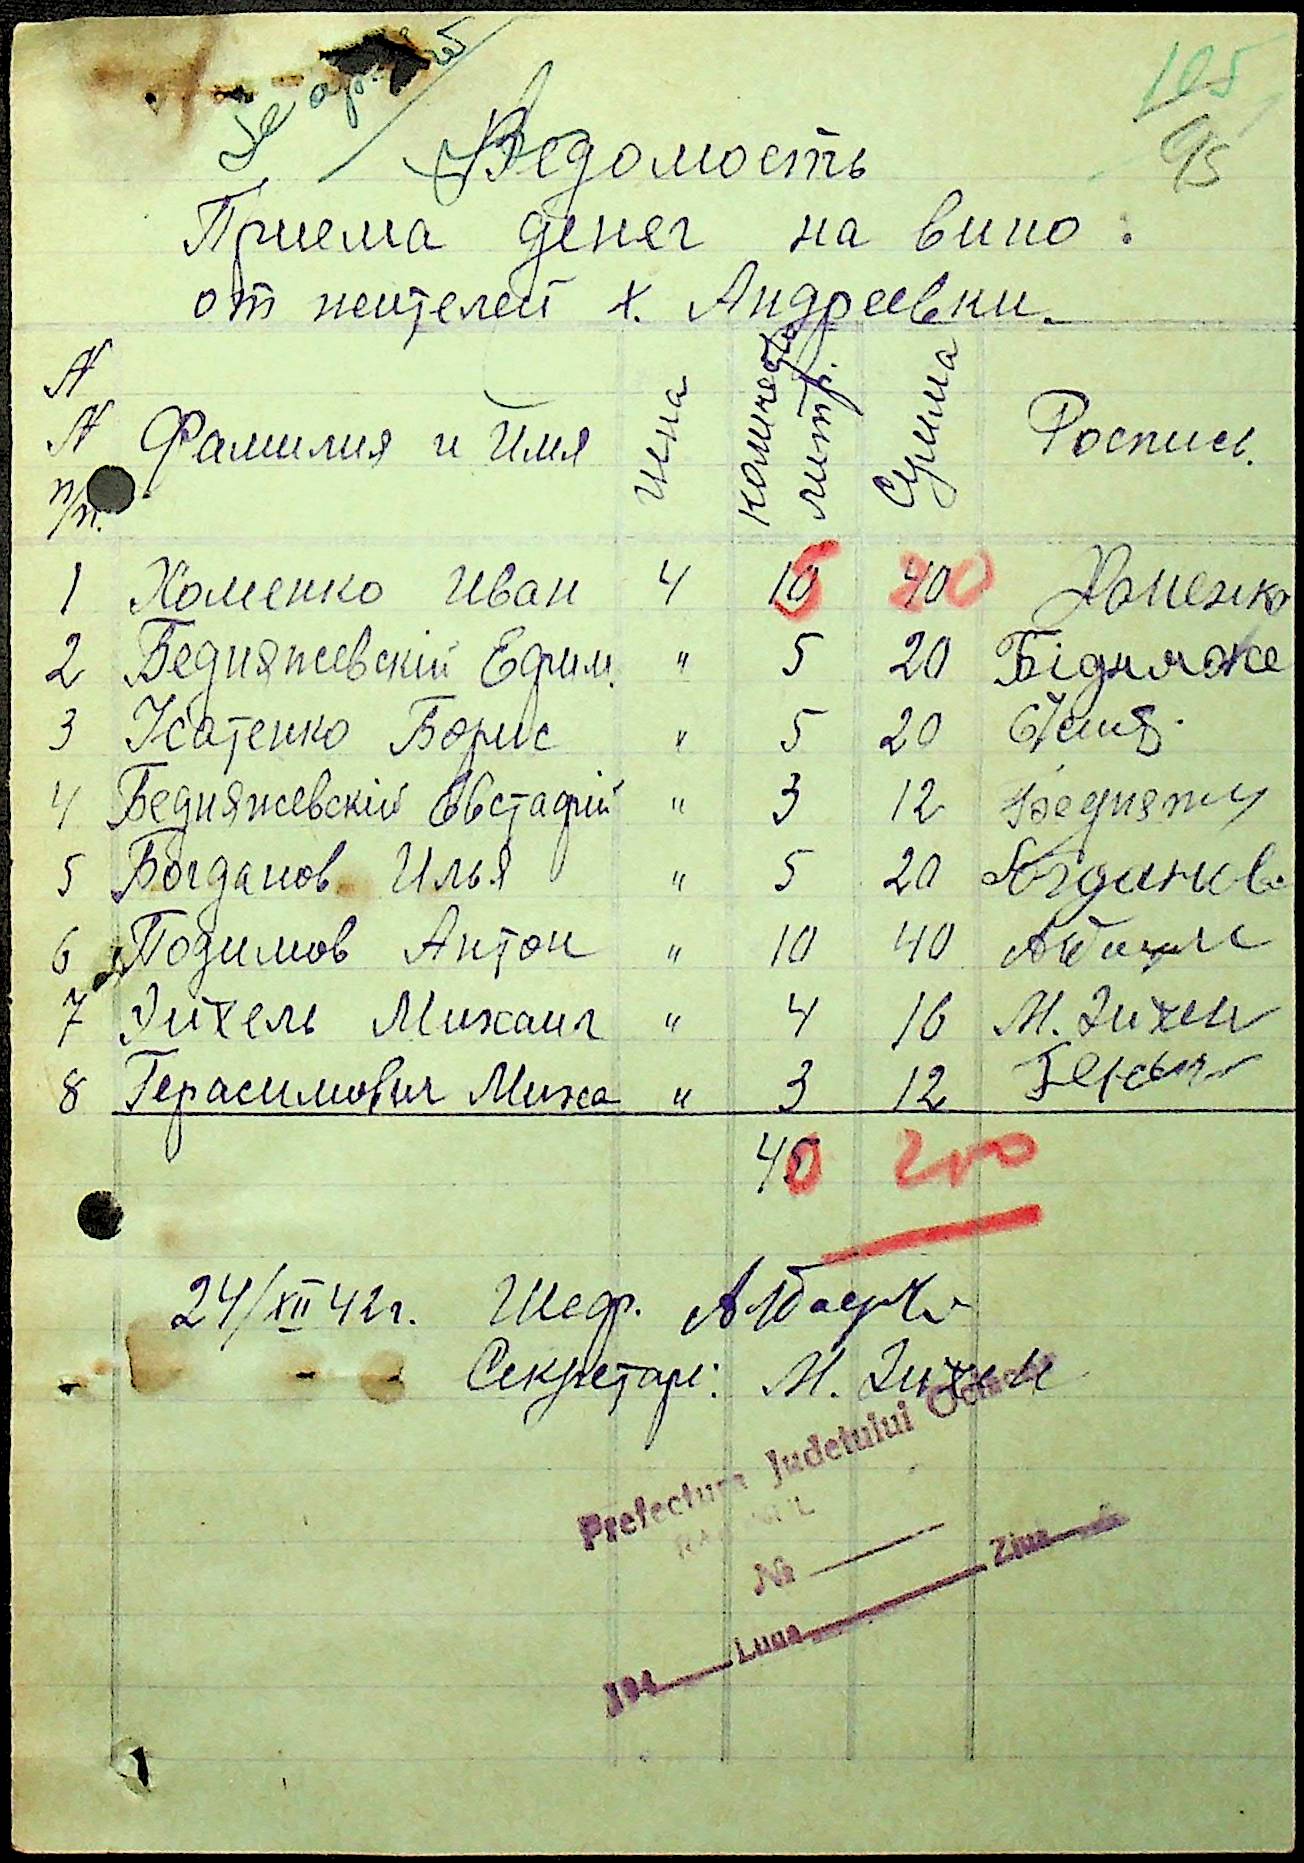 105
95
Ведомость
Приема денег на вино:
от жителей х. Андреевки.
N N п/п. Фамилия и Имя Цена количество литр. Сумма Роспись.
1 Хоменко Иван 4 5 20 Хоменко
2 Бедняжевскiй Ефим. " 5 20 Бідняже
3 Усатенко Борис " 5 20
4 Бедняжевскiй Евстафiй " 3 12 Бедняж
5 Богданов Илья " 5 20 Богданов
6 Подимов Антон " 10 40
7 Зихель Михаил " 4 16 М. Зихель
8 Герасимович Миха " 3 12
40 200
24/XII 42 г. Шеф.
Секретарь: М. Зихель
Prefectura Judetului Oceacov
№
194 Luna Ziua